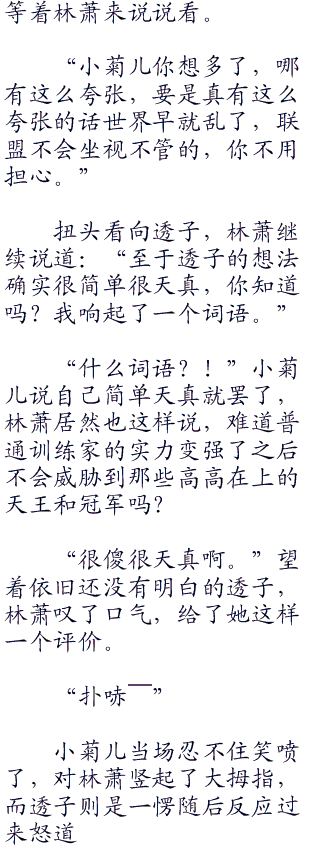 等着林萧来说说看。
“小菊儿你想多了，哪
有这么夸张，要是真有这么
夸张的话世界早就乱了，联
盟不会坐视不管的，你不用
担心。”
扭头看向透子，林萧继
续说道：“至于透子的想法
确实很简单很天真，你知道
吗？我响起了一个词语。”
“什么词语？！”小菊
儿说自己简单天真就罢了，
林萧居然也这样说，难道普
通训练家的实力变强了之后
不会威胁到那些高高在上的
天王和冠军吗？
“很傻很天真啊。”望
着依旧还没有明白的透子，
林萧叹了口气，给了她这样
一个评价。
“扑哧——”
小菊儿当场忍不住笑喷
了，对林萧竖起了大拇指，
而透子则是一愣随后反应过
来怒道